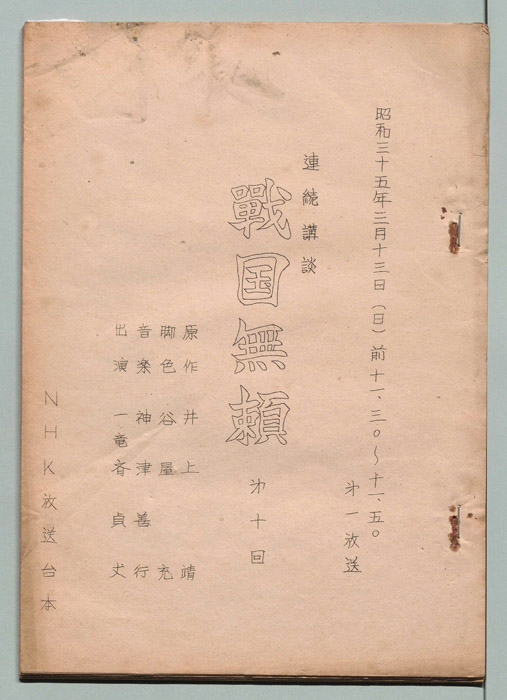 昭和三十五年三月十三日(日)前十一、三〇〜十一、五〇
才一放送
連続講談
戰国無頼
才十回
原作 井上靖
脚色 谷屋充
音楽 神津善行
出演 一竜斎貞丈
NHK放送台本